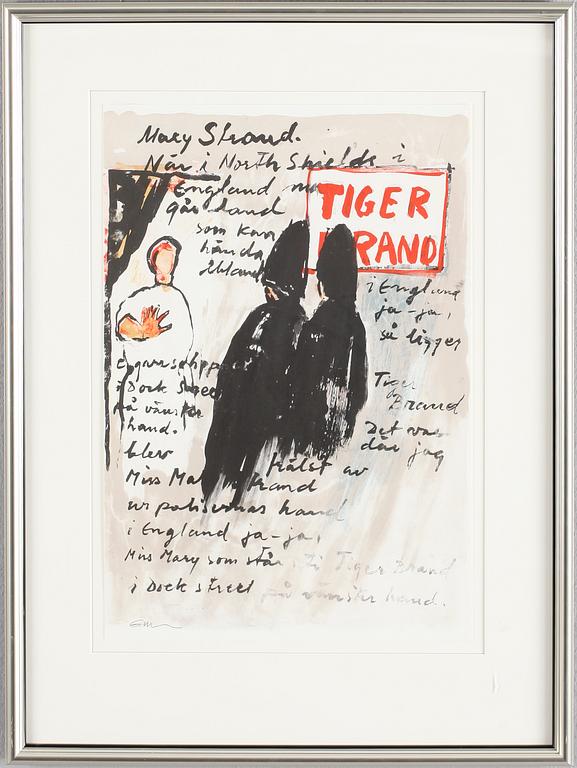 Mary Strand.
När i North Shields i
England
går iland
som kan
hända
ibland
TIGER
BRAND
i England
ja-ja,
så ligger
Tiger
Brand
Det var
där jag
i Dock Street
på vänster
hand.
blev frälst av
Miss Mary Strand
ur polisernas hand
i England ja-ja,
Miss Mary som står i Tiger Brand
i Dock street på vänster hand.